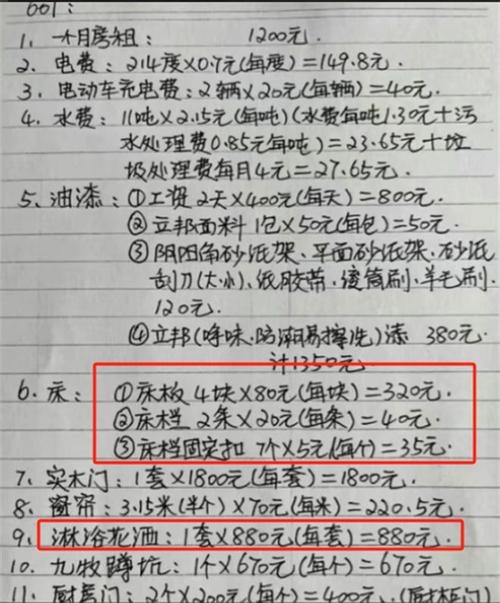 601:
1. 一个月房租: 1200元.
2. 电费: 214度×0.7元(每度)=149.8元.
3. 电动车充电费: 2辆×20元(每辆)=40元.
4. 水费: 11吨×2.15元(每吨)(水费每吨1.30元+污
水处理费0.85元每吨)=23.65元+垃
圾处理费每月4元=27.65元.
5. 油漆: ①工资 2天×400元(每天)=800元.
② 立邦面料 1包×50元(每包)=50元.
③ 阴阳角砂纸架、平面砂纸架、砂纸
刮刀(大小)、纸胶带、滚筒刷、羊毛刷.
120元.
④立邦(净味.防潮易擦洗)漆 380元
计1350元.
6. 床: ①床板 4块×80元(每块)=320元.
②床栏 2条×20元(每条)=40元.
③床栏固定扣 7个×5元(每个)=35元.
7. 实木门: 1套×1800元(每套)=1800元.
8. 窗帘: 3.15米(半个)×70元(每米)=220.5元.
9. 淋浴花洒: 1套×880元(每套)=880元.
10. 九牧蹲坑: 1个×670元(每个)=670元.
11. 厨房门: 2个×200元(每个)=400元.(厨柜门)